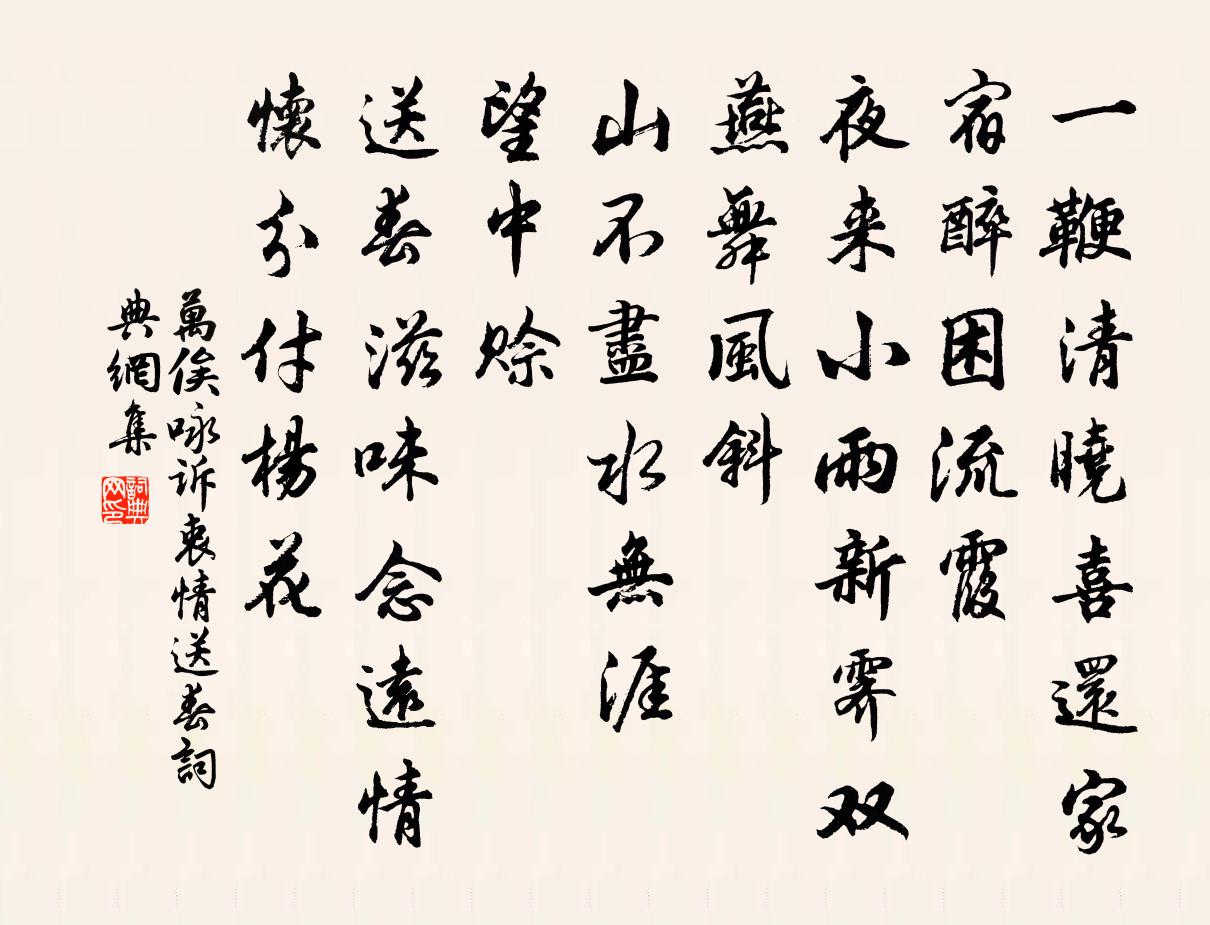 一鞭清曉喜還家
宿醉困流霞
夜来小雨新霽双
燕舞風斜
山不盡水無涯
望中賒
送春滋味念遠情
懷分付楊花
萬俟咏訴衷情送春詞
典網集
詞典网印